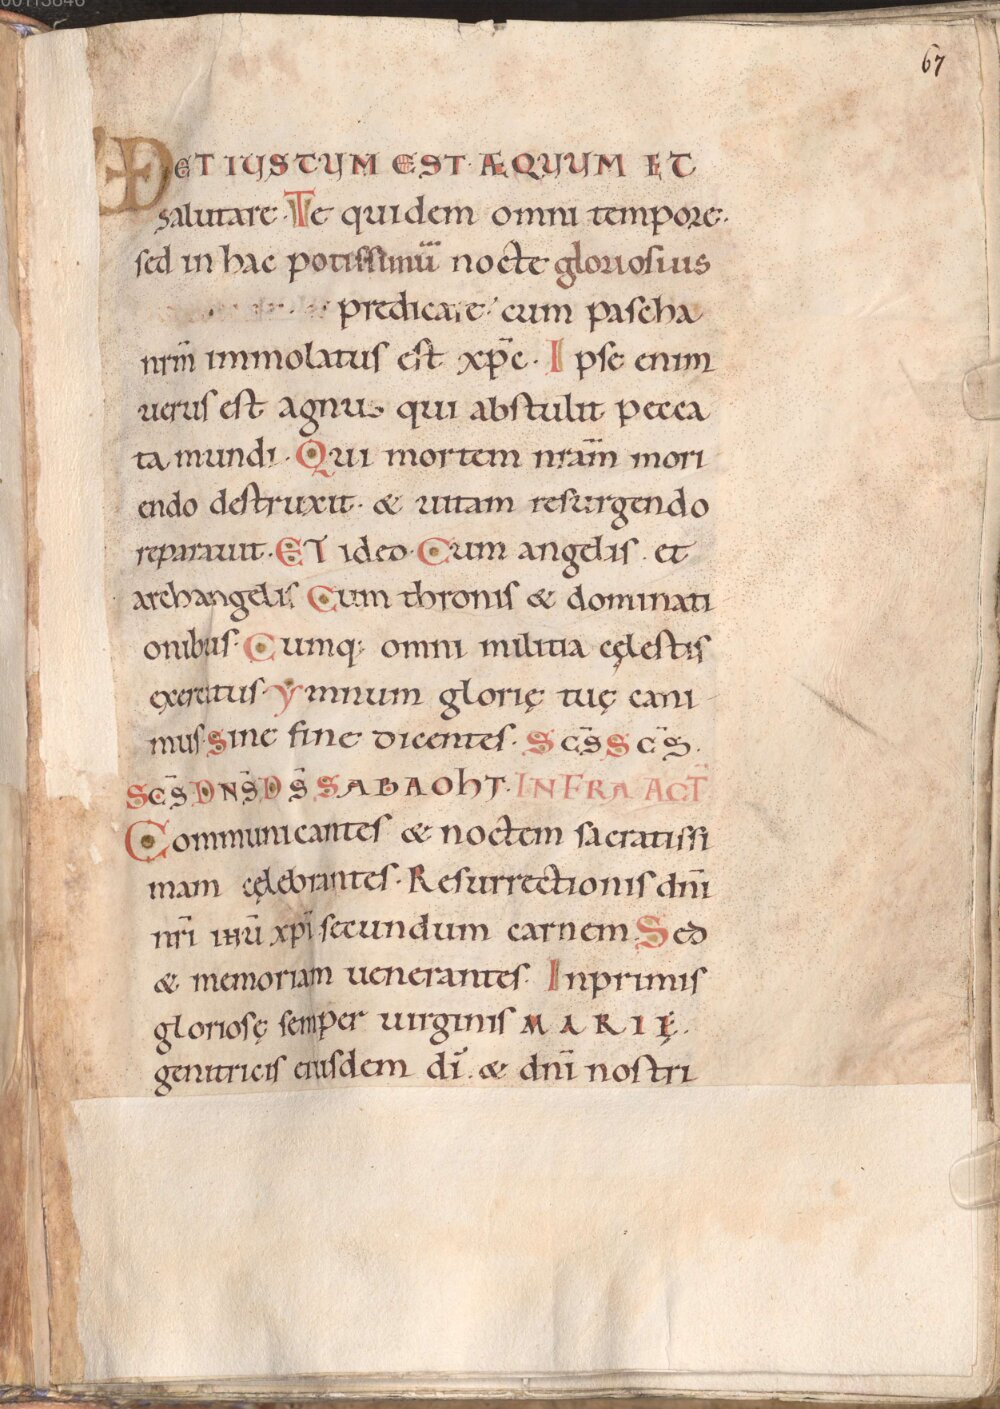 67
ET IUSTUM EST ÆQUUM ET
salutare. Te quidem omni tempore.
sed in hac potissimū nocte gloriosius
predicare. cum pascha
nr̄m immolatus est xp̄c. Ipse enim
uerus est agnus qui abstulit pecca
ta mundi. Qui mortem nr̄am mori
endo destruxit. & uitam resurgendo
reparauit. ET ideo. Cum angelis. et
archangelis. Cum thronis & dominati
onibus. Cumq; omni militia cęlestis
exercitus. ymnum glorię tuę cani
mus sine fine dicentes. SC̄S SC̄S.
SC̄S DN̄S D̄S SABAOHT. INFRA ACT̄
Communicantes & noctem sacratissi
mam cęlebrantes. Resurrectionis dn̄i
nr̄i ihū xp̄i secundum carnem. Sed
& memoriam uenerantes. Inprimis
gloriosę semper uirginis MARIĘ.
genitricis eiusdem dī. & dn̄i nostri